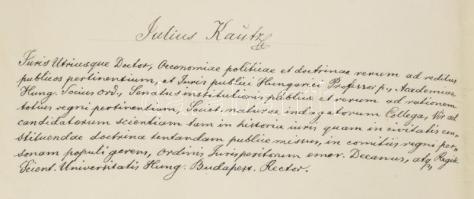 Julius Kautz
Juris Utriusque Doctor, Oeconomiae politicae et doctrinae rerum ad reditus
publicos pertinentium, et Juris publici Hungarici Professor p. o., Academiae
Hung. Socius ord., Senatus institutionis publicae et rerum ad rationem
totius regni pertinentium, Societ. naturae indagatorum Collega, Vir ad
candidatorum scientiam tam in historia iuris quam in civitatis con-
stituendae doctrina tentandam publice missus, in comitiis regni per-
sonam populi gerens, Ordinis Jurisperitorum emer. Decanus, atq. Regiae
Scient. Universitatis Hung. Budapest. Rector.